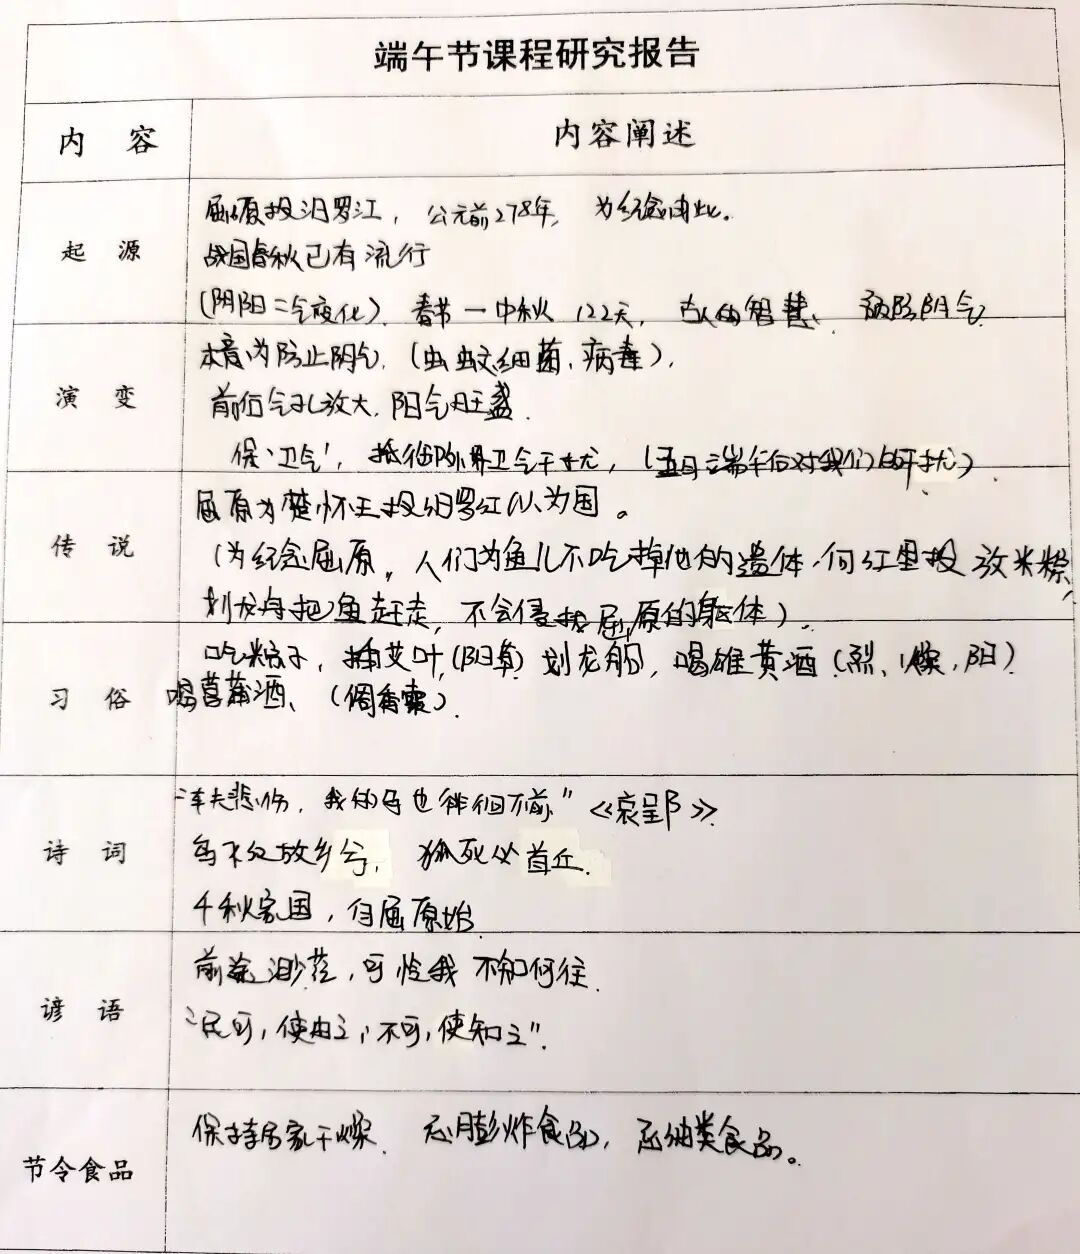 端午节课程研究报告
内 容 内容阐述
屈原投汨罗江，公元前278年，为纪念由此。
起 源
战国春秋已有流行
(阴阳二气变化)．春节一中秋 122天，古人的智慧、预防阴气
本意为防止阴气．(虫蚊细菌、病毒)．
演 变
前后气孔放大．阳气旺盛．
保"卫气"，抵御外界卫气干扰，(五月端午后对我们的干扰)．
屈原为楚怀王投汨罗江以为国。
传 说
(为纪念屈原，人们为鱼儿不吃掉他的遗体，向江里投放米粽，
划龙舟把鱼赶走，不会侵扰屈原的躯体)。
吃粽子，插艾叶，(阳草)划龙船，喝雄黄酒(烈、燥、阳)
习 俗 喝菖蒲酒、(佩香囊)．
"车夫悲伤，我的马也徘徊不前"《哀郢》
诗 词
鸟飞反故乡兮，狐死必首丘．
千秋家国，自屈原始
前途渺茫，可怜我不知何往．
谚 语
"民可，使由之，不可，使知之"．
保持居家干燥．忌膨炸食品，忌油类食品。
节令食品